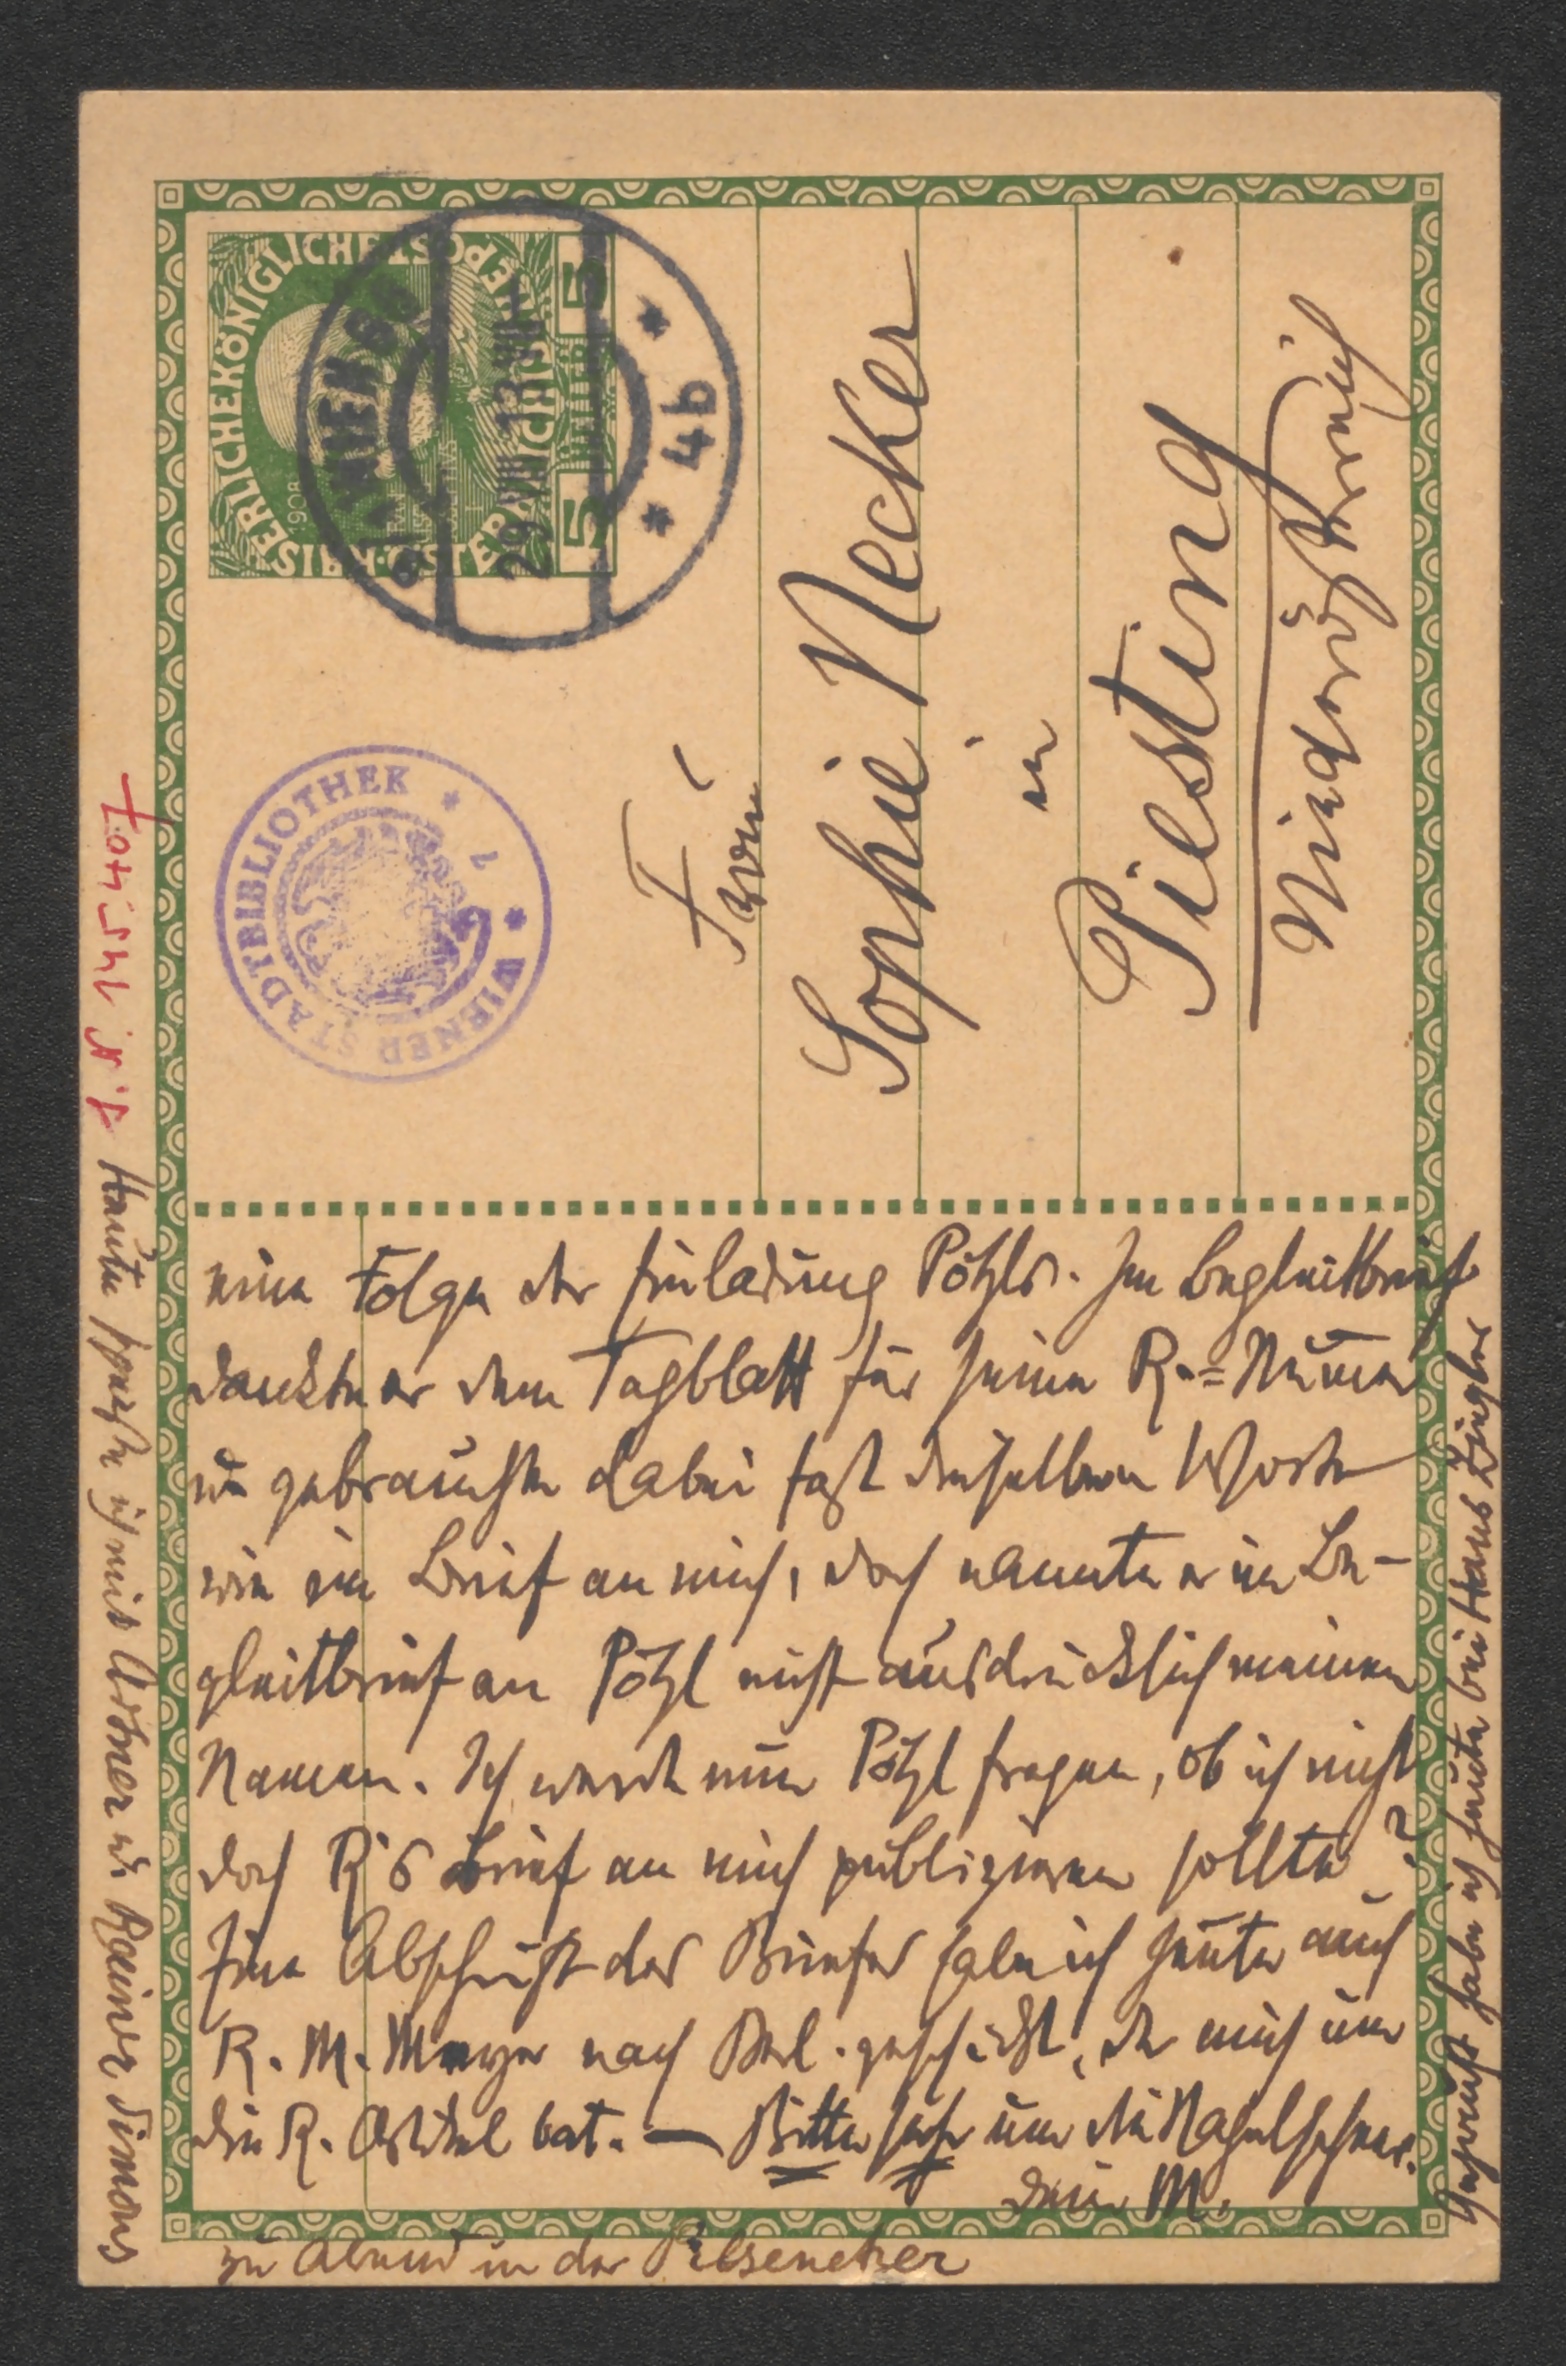 KAISERLICHE KÖNIGLICHE ÖSTERREICHISCHE POST
1908
5 HELLER 5
WIEN 66
29.VIII 13
* 4b *
* WIENER STADTBIBLIOTHEK *
Frau
Sophie Necker
in
Piesting
Niederösterreich
J. N. 145.407
eine Folge der Einladung Pötzls. Im Begleitbrief
dankte er dem Tagblatt für seine R.=Numer
u. gebrauchte dabei fast dieselben Worte
wie im Brief an mich, doch nannte er im Be-
gleitbrief an Pötzl nicht ausdrücklich meinen
Namen. Ich werde nun Pötzl fragen, ob ich nicht
doch R's Brief an mich publiziren sollte?
Eine Abschrift des Briefes habe ich heute auch
R. M. Meyer nach Berl. geschickt, der mich um
die R. Artikel bat. — Bitte sehr um die Nagelscheer.
Dein M.
Gespeist habe ich heute bei Hans Ziegler
zu Abend in der Pilsenetzer
Heute speiste ich mit u. Rainer Simons